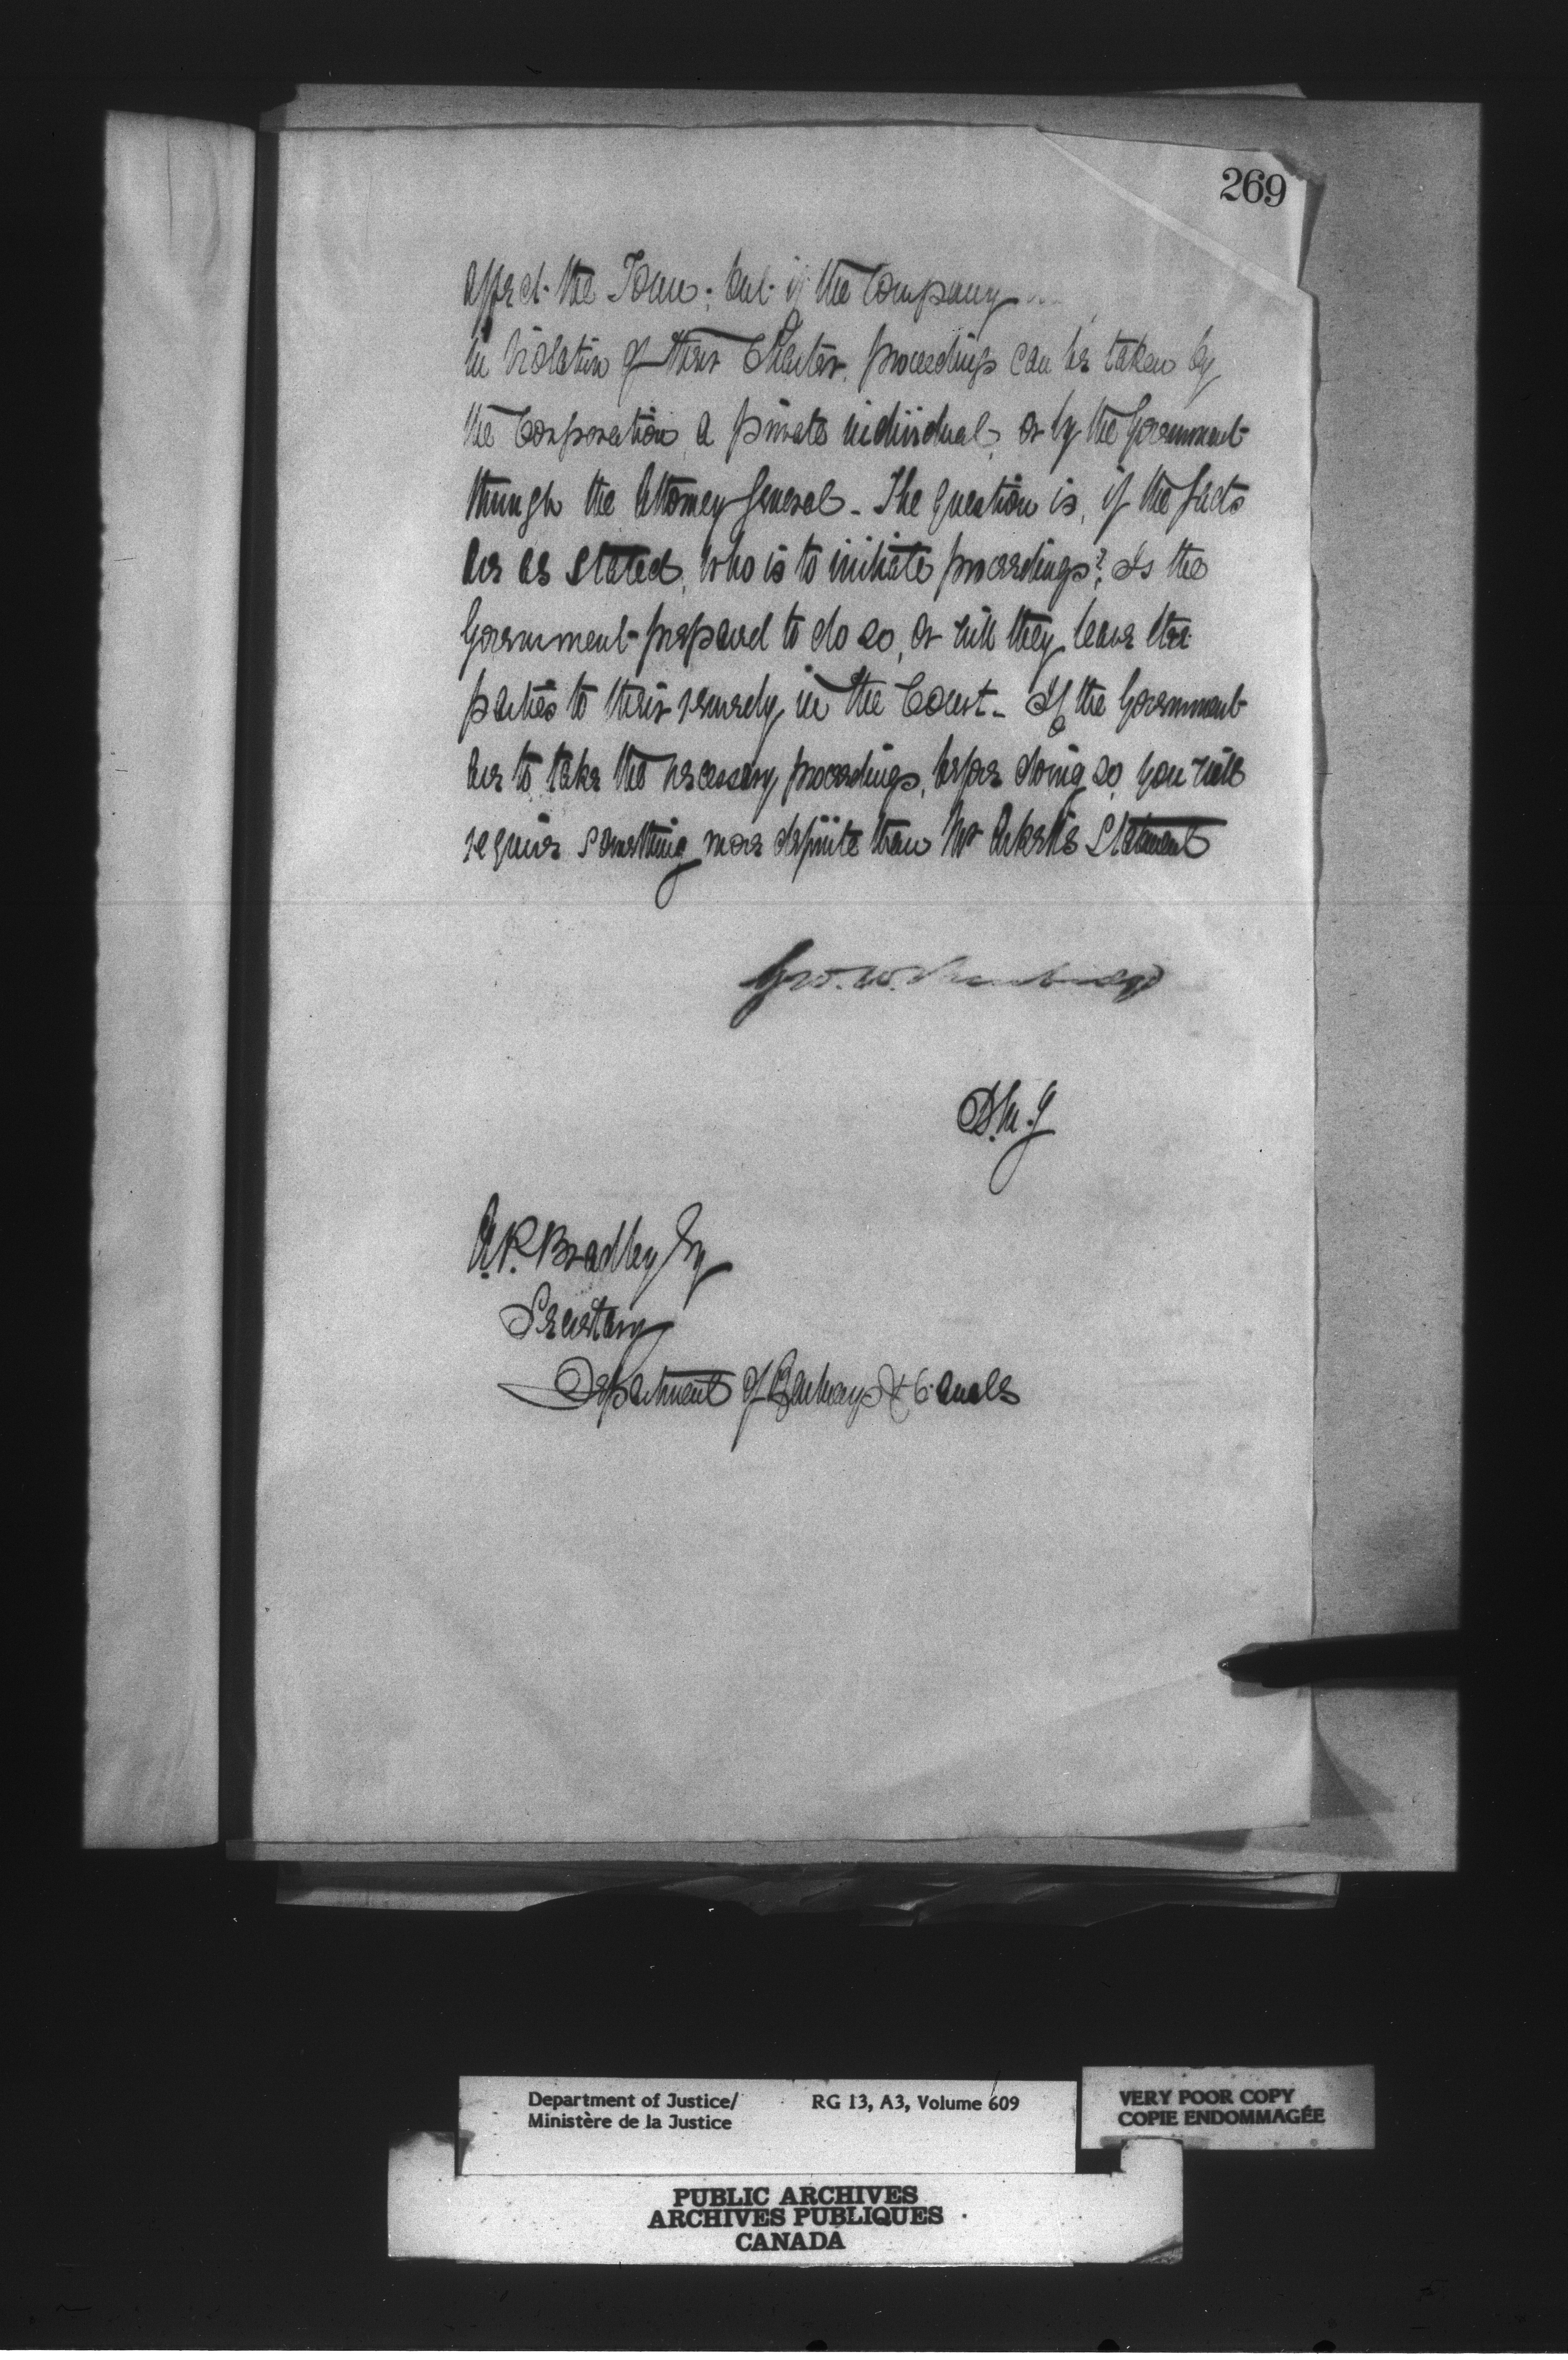 269
affect the Town; but if the Company
in violation of their Charter, proceedings can be taken by
the Corporation, a private individual, or by the Government
through the Attorney General - The question is, if the facts
are as stated, who is to initiate proceedings? Is the
Government prepared to do so, or will they leave the
parties to their remedy in the Court - If the Government
are to take the necessary proceedings, before doing so, you will
require something more definite than Mr Statement
Geo. W. Burbidge
D.M.J
A.P. Bradley Esq
Secretary
Department of Railways & Canals
Department of Justice/ RG 13, A3, Volume 609
Ministère de la Justice
VERY POOR COPY
COPIE ENDOMMAGÉE
PUBLIC ARCHIVES
ARCHIVES PUBLIQUES
CANADA